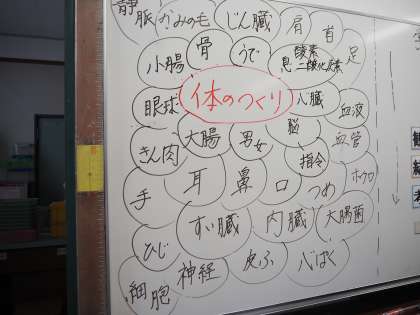 静脈 かみの毛 じん臓 肩 首 足
小腸 骨 うで 酸素
二酸化炭素
眼球 体のつくり 心臓 血液
きん肉 大腸 男女 脳 血管
指令
手 耳 鼻 口 つめ ホクロ
すい臓 内臓 大腸菌
ひじ
細胞 神経 皮ふ 心ぱく